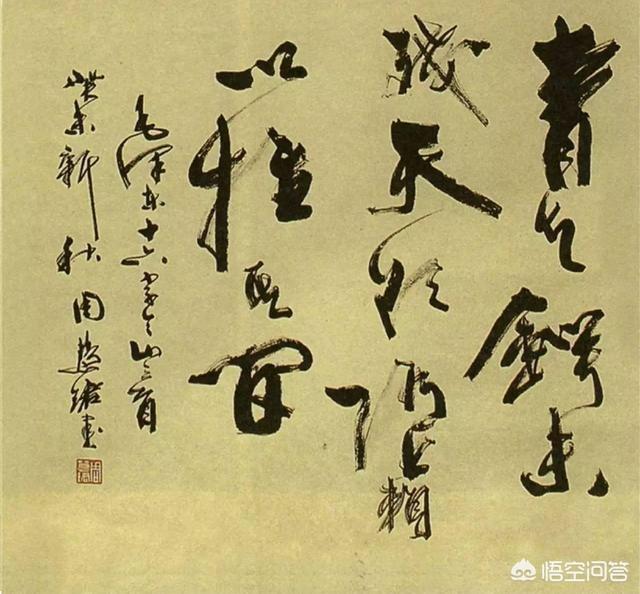 青天鍔未
残天欲堕賴
以拄其间
毛泽东十六字令山三首
癸未新秋周慧珺书
悟空问答